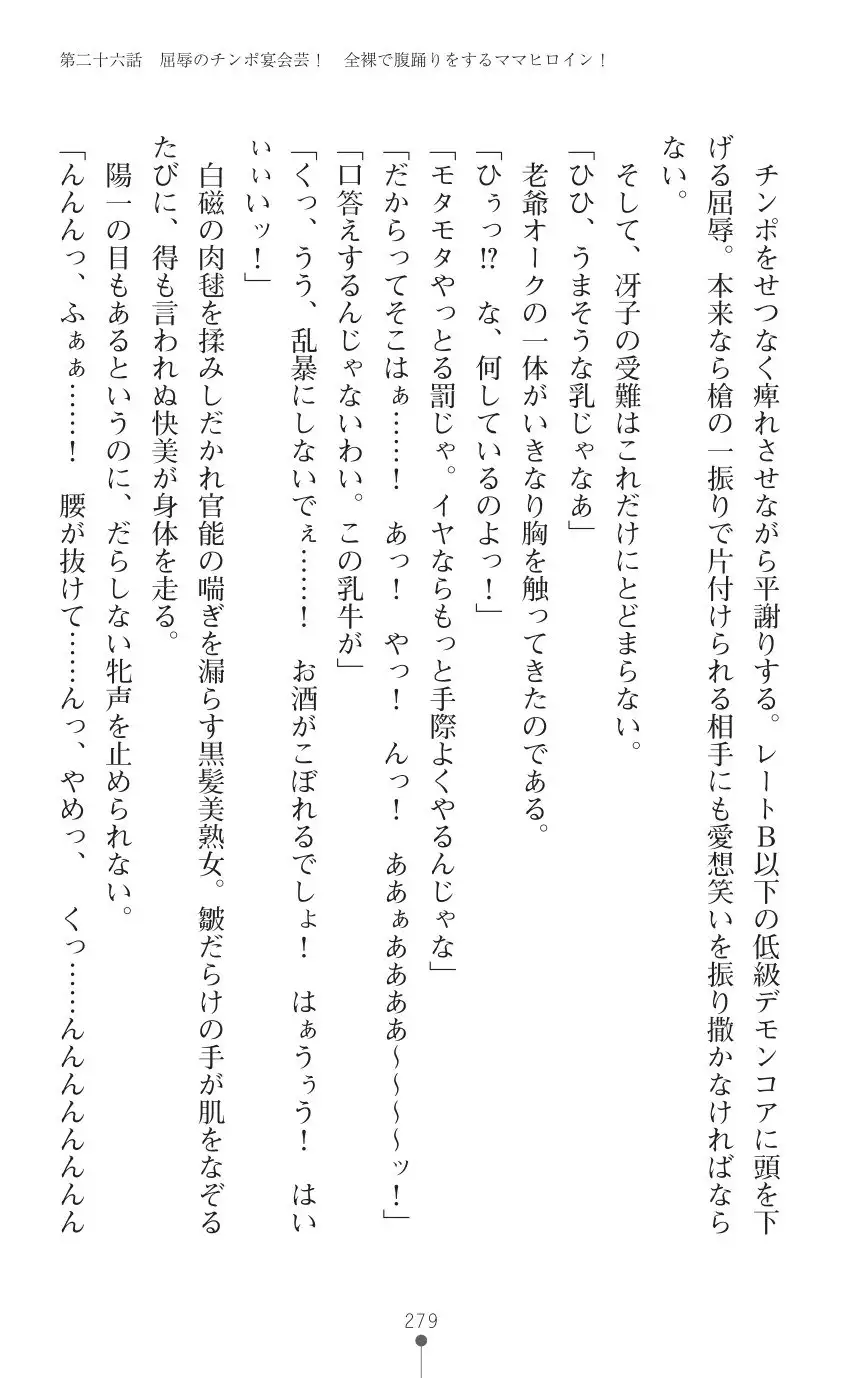 第二十六話　屈辱のチンポ宴会芸！　全裸で腹踊りをするママヒロイン！
　チンポをせつなく痺れさせながら平謝りする。レートＢ以下の低級デモンコアに頭を下
げる屈辱。本来なら槍の一振りで片付けられる相手にも愛想笑いを振り撒かなければなら
ない。
　そして、冴子の受難はこれだけにとどまらない。
「ひひ、うまそうな乳じゃなあ」
　老爺オークの一体がいきなり胸を触ってきたのである。
「ひぅっ!?　な、何しているのよっ！」
「モタモタやっとる罰じゃ。イヤならもっと手際よくやるんじゃな」
「だからってそこはぁ……！　あっ！　やっ！　んっ！　ああぁああああ～～～～ッ！」
「口答えするんじゃないわい。この乳牛が」
「くっ、うう、乱暴にしないでぇ……！　お酒がこぼれるでしょ！　はぁうぅう！　はい
ぃぃいッ！」
　白磁の肉毬を揉みしだかれ官能の喘ぎを漏らす黒髪美熟女。皺だらけの手が肌をなぞる
たびに、得も言われぬ快美が身体を走る。
　陽一の目もあるというのに、だらしない牝声を止められない。
「んんんっ、ふぁぁ……！　腰が抜けて……んっ、やめっ、　くっ……んんんんんんんん
279